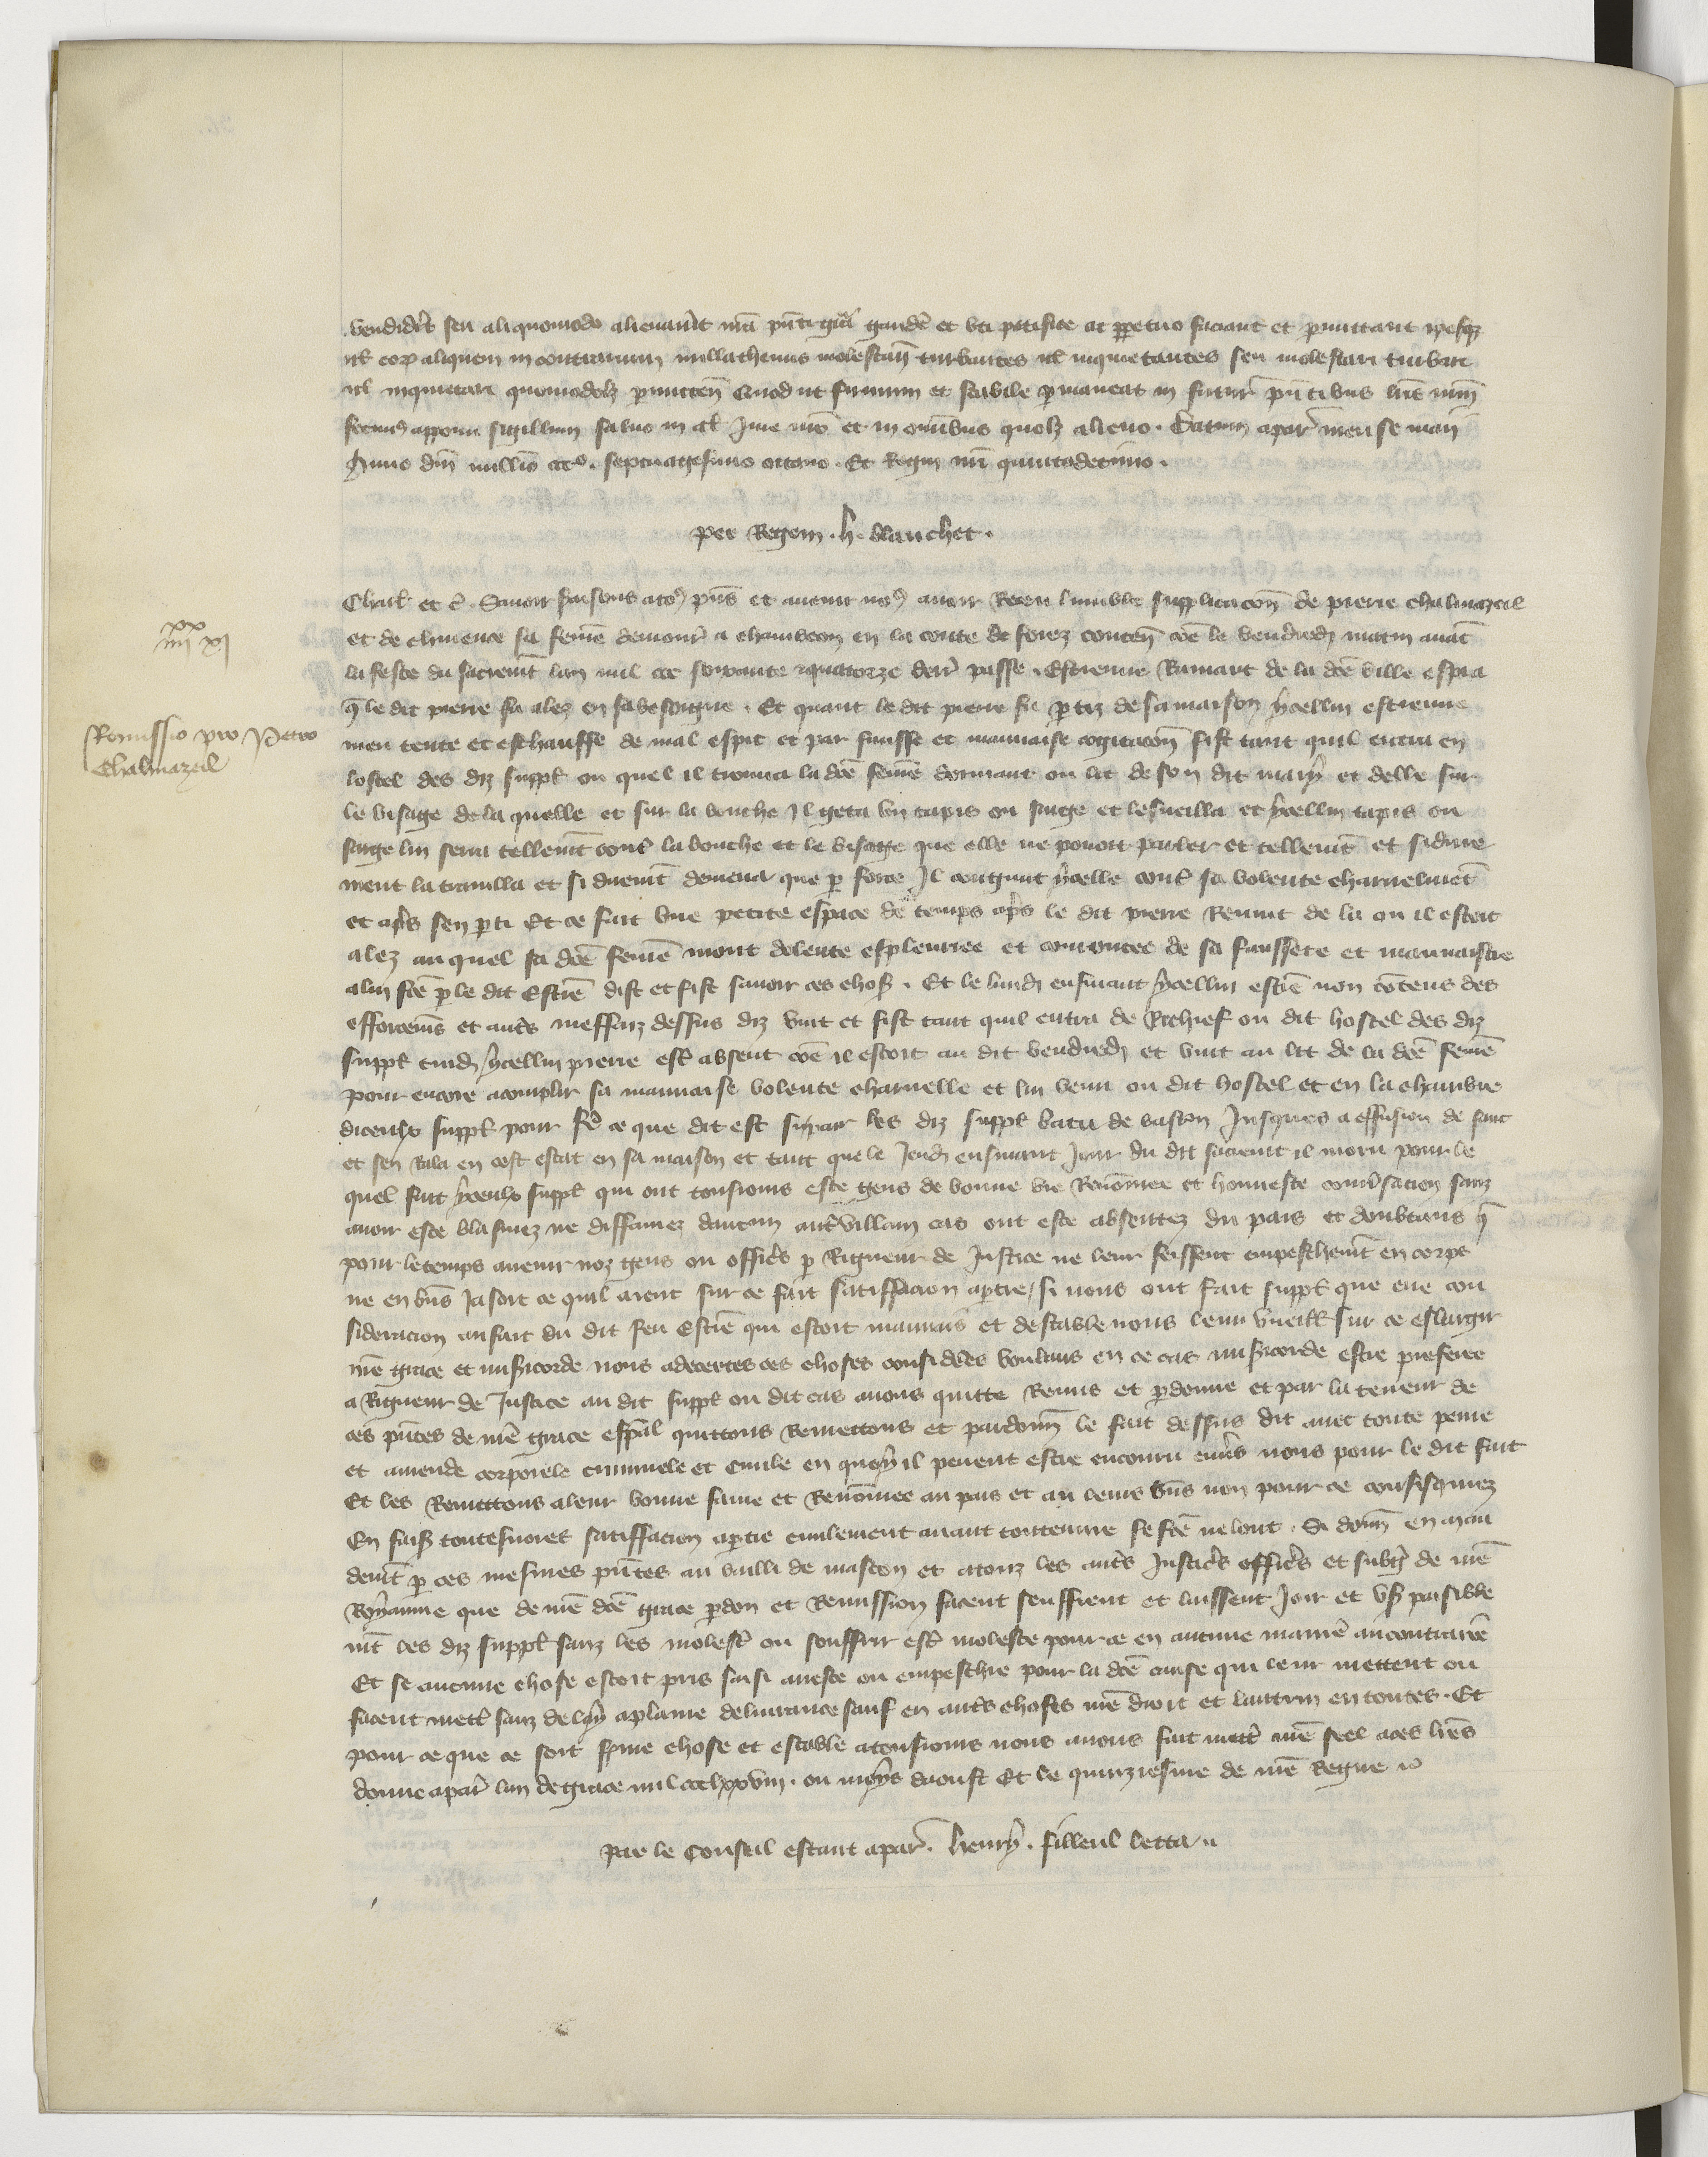 vendider̄t seu aliquomodo alienauer̄t nr̄a pn̄ti gr̄a gaudere et vti pacifice ac ꝑpetuo faciant et ꝑmittant ipsosqz
ul' eorum aliquem in contrarium nullathenus molestan̄ turbantes ul' inquietantes seu molestari turbari
ul' inquietari quomodolz ꝑmitten̄ Quod ut firmum et stabile ꝑmaneat in futur̄ pn̄tibus litt nr̄m
fecimꝰ apponi sigillum saluo in al' Jure nr̄o et in omībus quolz alieno. Datum apar̄ mense maii
Anno dn̄i millīo cccͦ. septuagesimo octauo. Et Regni nr̄i quintodecimo.
per Regem. h. blanchet.
Charl' et c̄. Sauoir faisons atoꝰ pn̄s et auenir noꝰ auoir Receu lumble supplicacōn de pierre chalmazeil
et de climence sa fem̄e demour̄ a chambeon en la conte de forez conten̄ cōe le vendredi matin auāt
la feste du sacrem̄t lan mil ccc soixante & quatorze derr̄ passe. Estienne Rumant de la dc̄e ville espia
q̄ le dit pierre fu alez en sa besoigne. Et quant le dit pierre fu ꝑtiz de sa maison ycellui estienne
meu tente et eschauffe de mal esp̄it et par fausse et mauuaise cogitacōn fist tant quil entra en
lostel des diz suppl' ou quel il trouua la dc̄e fem̄e dormant ou lit de son dit mary et delle sur
le visage de la quelle et sur la bouche Il geta vn tapis ou sarge et lesueilla et ycellui tapis ou
sarge lui serra tellem̄t contr̄ la bouche et le visage que elle ne pouoit parler et tellem̄t et si dure
ment la trauilla et si durem̄t demena que ꝑ force Il congnut ycelle contr̄ sa volente charnelmēt
et apr̄s sen ꝑti Et ce fait vne petite espace de temps apr̄s le dit pierre Reuint de la ou il estoit
alez au quel sa dc̄e fem̄e mout dolente esplouree et courroucee de sa faussete et mauuaistie
alui fc̄e ꝑ le dit Estiēe dist et fist sauoir ces chos̄. Et le lundi ensuiuant ycellui estiēe non cōtens des
efforcem̄s et autr̄s meffaiz dessus diz vint et fist tant quil entra de Rechief ou dit hostel des diz
suppl' cuid̄ ycellui pierre estr̄ absent cōe il estoit au dit vendredi et vint au lit de la dc̄e fem̄e
pour encore acomplir sa mauuaise volente charnelle et lui venu ou dit hostel et en la chambre
diceulx suppl' pour fē ce que dit est fu par les diz suppl' batu de baston Jusques a effusion de sanc
et sen Rala en cest estat en sa maison et tant que le Jeudi ensuiuant Jour du dit sacrem̄t il moru pour le
quel fait yceulx suppl' qui ont tousiours este gens de bonne vie Renōmee et honneste conuersacion sanz
auoir este blasmez ne diffamez daucun autr̄ villain cas ont este absentez du pais et doubtans q̄
pour le temps auenir noz gens ou offic̄rs ꝑ Rigueur de Justice ne leur feissent empeschem̄t en corps
ne en bn̄s Jasoit ce quil aient sur ce fait satiffacion aꝑtie, si nous ont fait suppl' que eue con
sideracion au fait du dit feu Estiēe qui estoit mauuais et destable nous leur vueill' sur ce eslargir
nr̄e grace et misericorde nous adecertes ces choses considerees voulans en ce cas misericorde estre preferee
a Rigueur de Justice au dit suppl' ou dit cas auons quitte Remis et ꝑdonne et par la teneur de
ces pn̄tes de nr̄e grace esp̄al quittons Remettons et pardonn̄ le fait dessus dit auec toute peine
et amende corporele criminele et ciuile en quoy il peuent estre encouru enuers nous pour le dit fait
Et les Remettons aleur bonne fame et Renōmee au pais et au leurs bn̄s non pour ce confisquez
En fais̄ toutesuoies satiffacion aꝑtie ciuilement auant toutenure se fc̄e nelont. Si donn̄ en man
dem̄t ꝑ ces mesmes pn̄tes au bailli de mascon et atouz les autr̄s Justic̄rs offic̄rs et subḡ de nr̄e
Royaume que de nr̄e dc̄e grace ꝑdon et Remission facent seuffrent et laissent Joir et vs̄ paisible
m̄t les diz suppl' sanz les molestr̄ ou souffrir estr̄ moleste pour ce en aucune manier̄e au contraire
Et se aucune chose estoit pris saisi areste ou empeschie pour la dc̄e cause qui leur mettent ou
facent mettr̄ sanz delay aplaine deliurance sauf en autr̄s choses nr̄e droit et lautrui en toutes. Et
pour ce que ce soit ferme chose et estable atousiours nous auons fait mettr̄ nr̄e seel aces lr̄es
donne apar̄ lan de grace mil ccclxxviii. ou moys daoust Et le quinziesme de nr̄e Regne
par le Conseil estant apar̄. henry. filleul lecta
xx
iiii xi
Remissio pro Petro
Chalmazeil